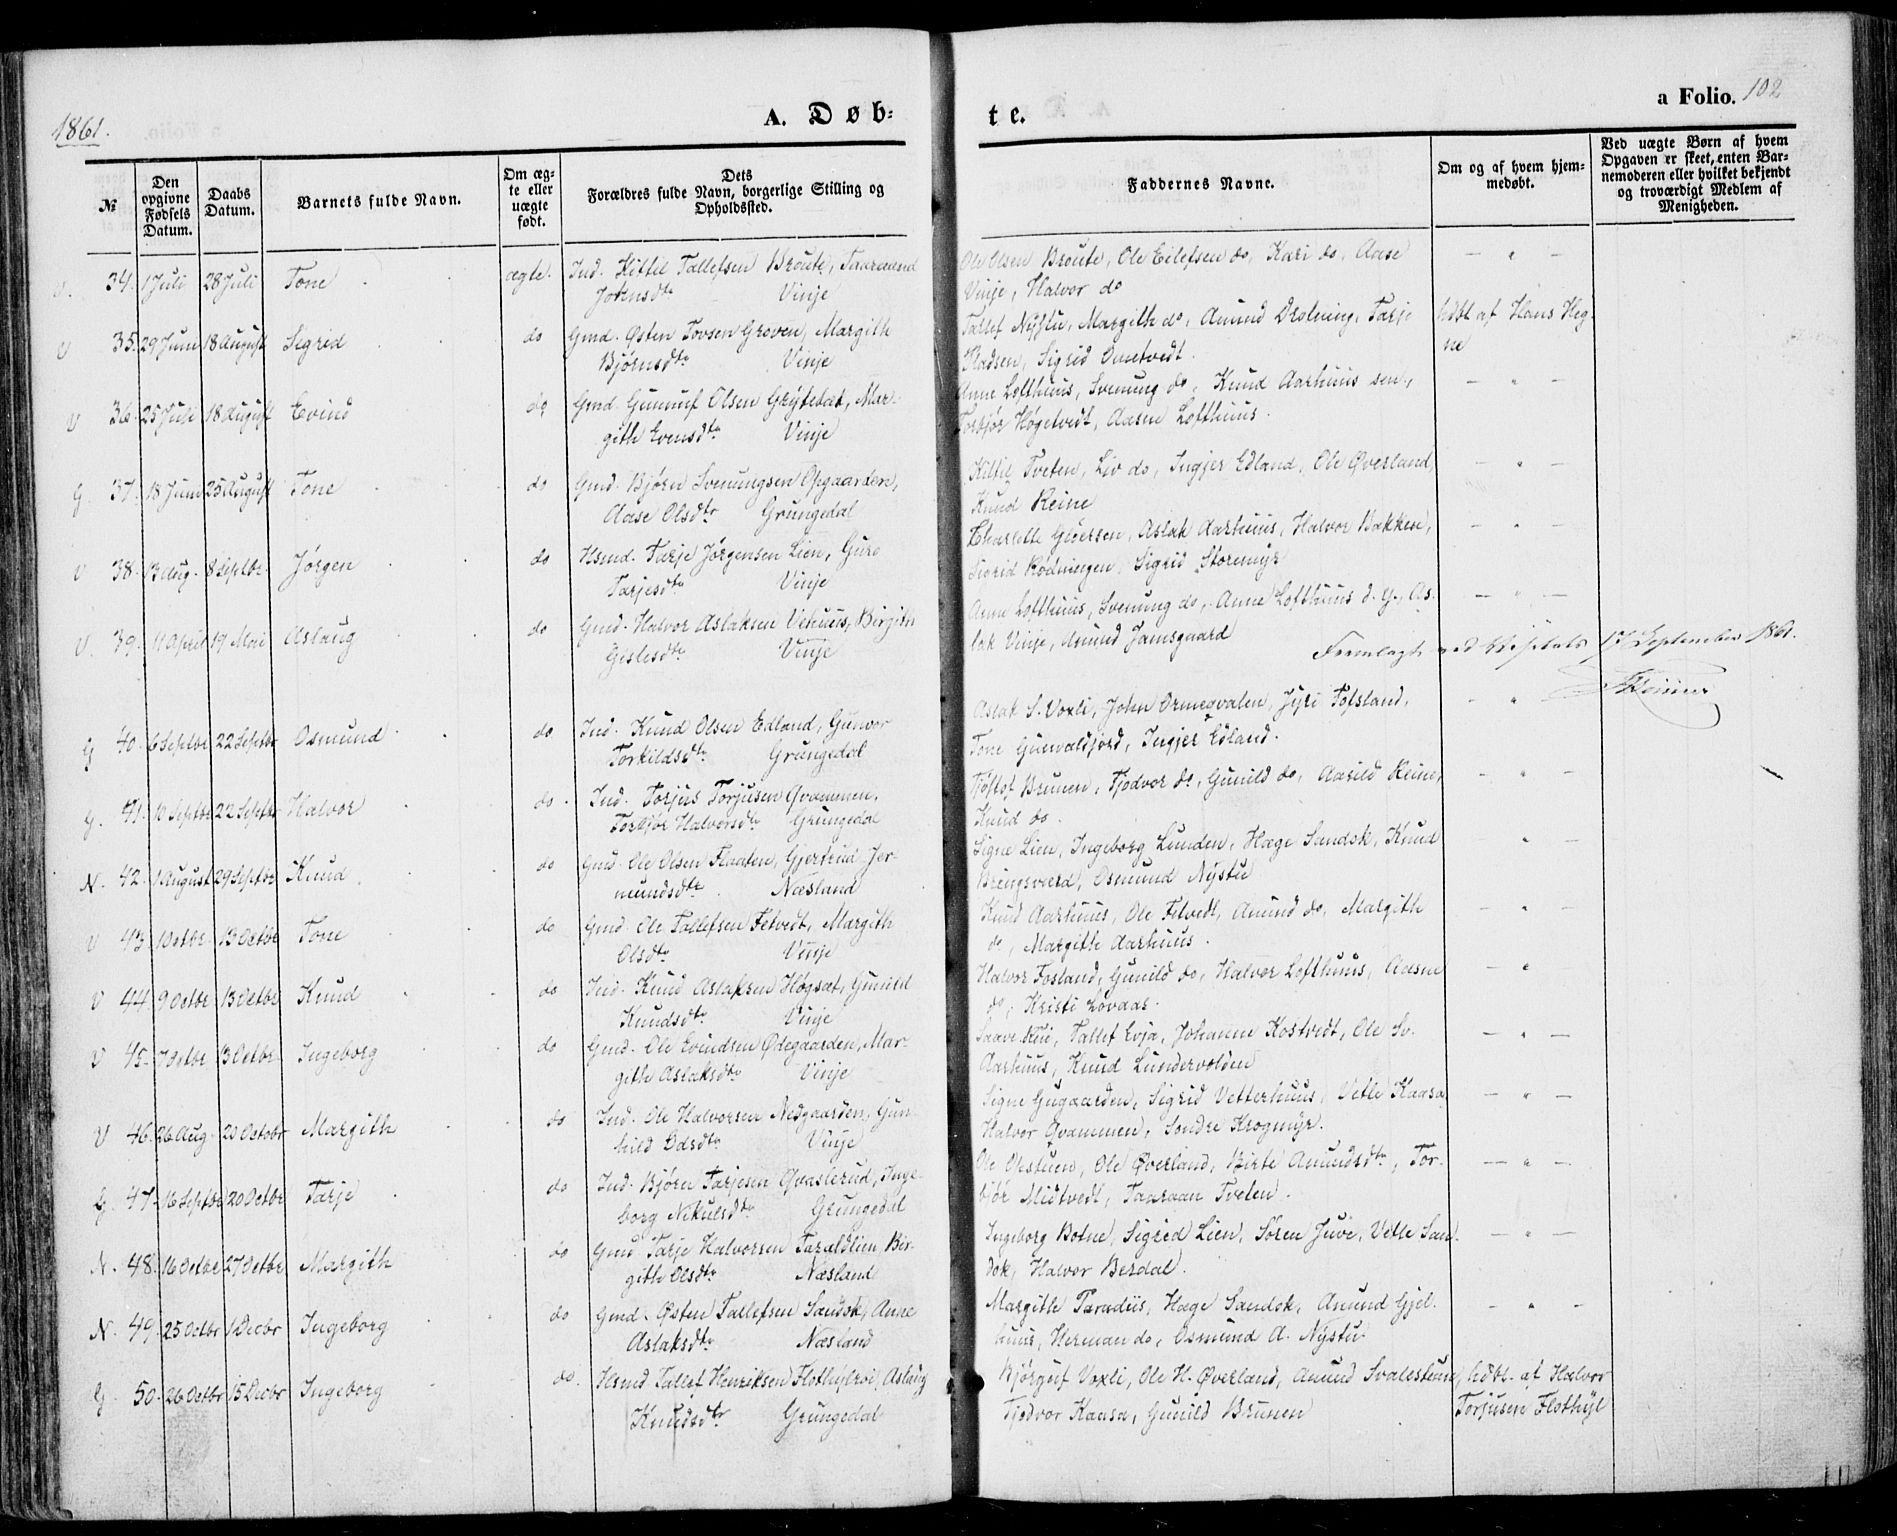 1861.
A. Døb-
te.
a Folio. 102
№
Den opgivne Fødsels Datum.
Daabs Datum.
Barnets fulde Navn.
Om ægte eller uægte født.
Dets Forældres fulde Navn, borgerlige Stilling og Opholdssted.
Faddernes Navne.
Om og af hvem hjemmedøbt.
Ved uægte Børn af hvem Opgaven er skeet, enten Barnemoderen eller hvilket bekjendt og troværdigt Medlem af Menigheden.
V. 34. 1 Juli 28 Juli Tone ægte. Ind. Kittil Tallefsen Broute, Taaraand Ole Olsen Broute, Ole Eilefsen do, Kari do, Aase — " —
Jorensdtr Vinje Vinje, Halvor do
V 35. 29 Juni 18 August Sigrid do Gmd. Østen Tovsen Groven, Margith Tallef Nystu, Margith do, Amund Drotning, Tarje hdbt af Hans Heg-
Bjørnsdtr Vinje Pladsen, Sigrid Ometvedt. ne
V 36. 25 Juli 18 August Evind do Gmd. Gunnuf Olsen Grytebæk, Mar- Anne Lofthuus, Svenung do, Knud Aarhuus sen., — " —
gith Evensdtr Vinje Torbjør Høgetvedt, Aasne Lofthuus.
G 37. 18 Juni 25 August Tone do Gmd. Bjørn Svenungsen Opgaarden, Kittil Tveten, Liv do, Ingjer Edland, Ole Øverland, — " —
Aase Olsdtr Grungedal Knud Reine
V 38. 13 Aug. 8 Septbr. Jørgen do Hsmd. Tarje Jørgensen Lien, Guro Charlotte Giversen, Aslak Aarhuus, Halvor Bakken, — " —
Tarjesdtr Vinje Sigrid Rødningen, Sigrid Storemyr
V. 39. 11 April 19 Mai Aslaug do Gmd. Halvor Aslaksen Vehuus, Birgith Anne Lofthuus, Svenung do, Anne Lofthuus d. y., As- — " —
Gislesdtr Vinje lak Vinje, Amund Jamsgaard
Fremlagt ved Visitats 17 September 1861.
G 40. 6 Septbr 22 Septbr Osmund do Ind. Knud Olsen Edland, Gunvor Aslak S. Voxli, John Ormegvalen, Jyri Tofsland, — " —
Torkildsdtr Grungedal Tone Gunvaldjord, Ingjer Edland.
G. 41. 10 Septbr 22 Septbr Halvor do Ind. Torjus Torjusen Qvammen, Tjøstof Brunen, Tjodvor do, Gunild do, Aasild Reine, — " —
Torbjør Halvorsdtr Grungedal Knud do.
N. 42. 1 August 29 Septbr Knud do Gmd. Ole Olsen Flaaten, Gjertrud Jer- Signe Lien, Ingeborg Lunden, Hæge Sandok, Knud "
mundsdtr Næsland Bringsværd, Osmund Nystu
V 43. 1 Octbr. 13 Octbr Tone do Gmd. Ole Tallefsen Fetvedt, Margith Knud Aarhuus, Ole Fetvedt, Amund do, Margith — " —
Olsdtr Vinje do, Margith Aarhuus.
V 44. 9 Octbr 13 Octbr Knud do Ind. Knud Aslaksen Høgsæt, Gunild Halvor Fosland, Gunild do, Halvor Lofthuus, Aasne — "
Knudsdtr Vinje do, Kristi Lovaas.
V 45. 7 Octbr 13 Octbr Ingeborg do Gmd. Ole Evindsen Ødegaarden, Mar- Saave Rui, Tallef Evja, Johanne Kostvedt, Ole Sv. — " —
gith Aslaksdtr Vinje Aarhuus, Knud Lundervolden
V 46. 26 Aug. 20 Octobr Margith do Ind. Ole Halvorsen Nedgaarden, Gun- Signe Gugaarden, Sigrid Vetterhuus, Vetle Kaasa — " —
hild Edsdtr Vinje Halvor Qvammen, Sondre Krogmyr.
G. 47. 16 Septbr 20 Octbr Tarje do Ind. Bjørn Tarjesen Qvaslerud, Inge- Ole Vestuen, Ole Øverland, Birte Amundsdtr, Tor- — " —
borg Nikulsdtr Grungedal bjør Midtvedt, Taaraan Tveten.
N. 48. 16 Octbr 27 Octbr Margith do Gmd Tarje Halvorsen Taraldlien, Bir- Ingeborg Botne, Sigrid Lien, Søren Juve, Vetle San- — " —
gith Olsdtr Næsland dok, Halvor Berdal.
N. 49. 25 Octbr 1 Decbr Ingeborg do Gmd. Østen Tallefsen Sandok, Anne Margith Paradiis, Hæge Sandok, Amund Gjel- — " —
Aslaksdtr Næsland huus, Herman do, Osmund A. Nystu
G 50. 26 Octbr 15 Decbr Ingeborg do. Hsmd Tallef Henriksen Flothylrøi, Aslaug Bjørguf Voxli, Ole H. Øverland, Amund Svalestuen, hdbt. af Halvor
Knudsdtr Grungedal Tjodvor Kaasa, Gunild Brunen Torjusen Flothyl